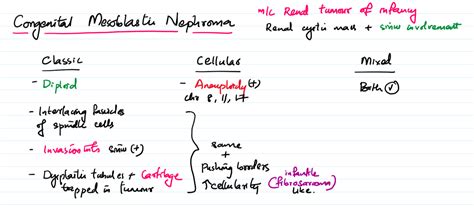 Congenital Mesoblastic Nephroma
m/c Renal tumour of infancy
Renal cystic mass + sinus involvement
Classic
- Diploid
- Interlacing fascicles
of spindle cells
- Invasion into sinus (+)
- Dysplastic tubules + Cartilage
trapped in tumour
Cellular
- Aneuploidy (+)
chr 8, 11, 17
same
+
Pushing borders
↑cellularity (infantile
fibrosarcoma)
like.
Mixed
Both (✓)